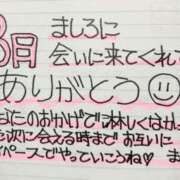 3日 ましろに
会いに来てくれて
ありがとう☺
のおかげで淋しくはか
た次に会える時まで お互いに
イペースでやっていこうね♥ ま